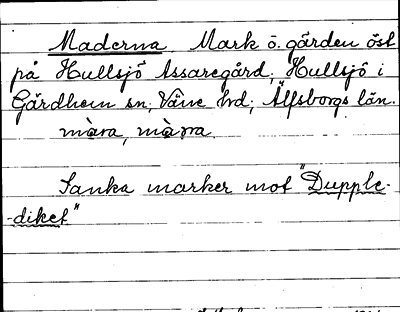 Maderna. Mark ö. gården öst
på Hullsjö Assaregård, Hullsjö i
Gärdhem sn, Väne hd, Älfsborgs län.
màra, màra.
Sanka marker mot "Dupple-
-diket"